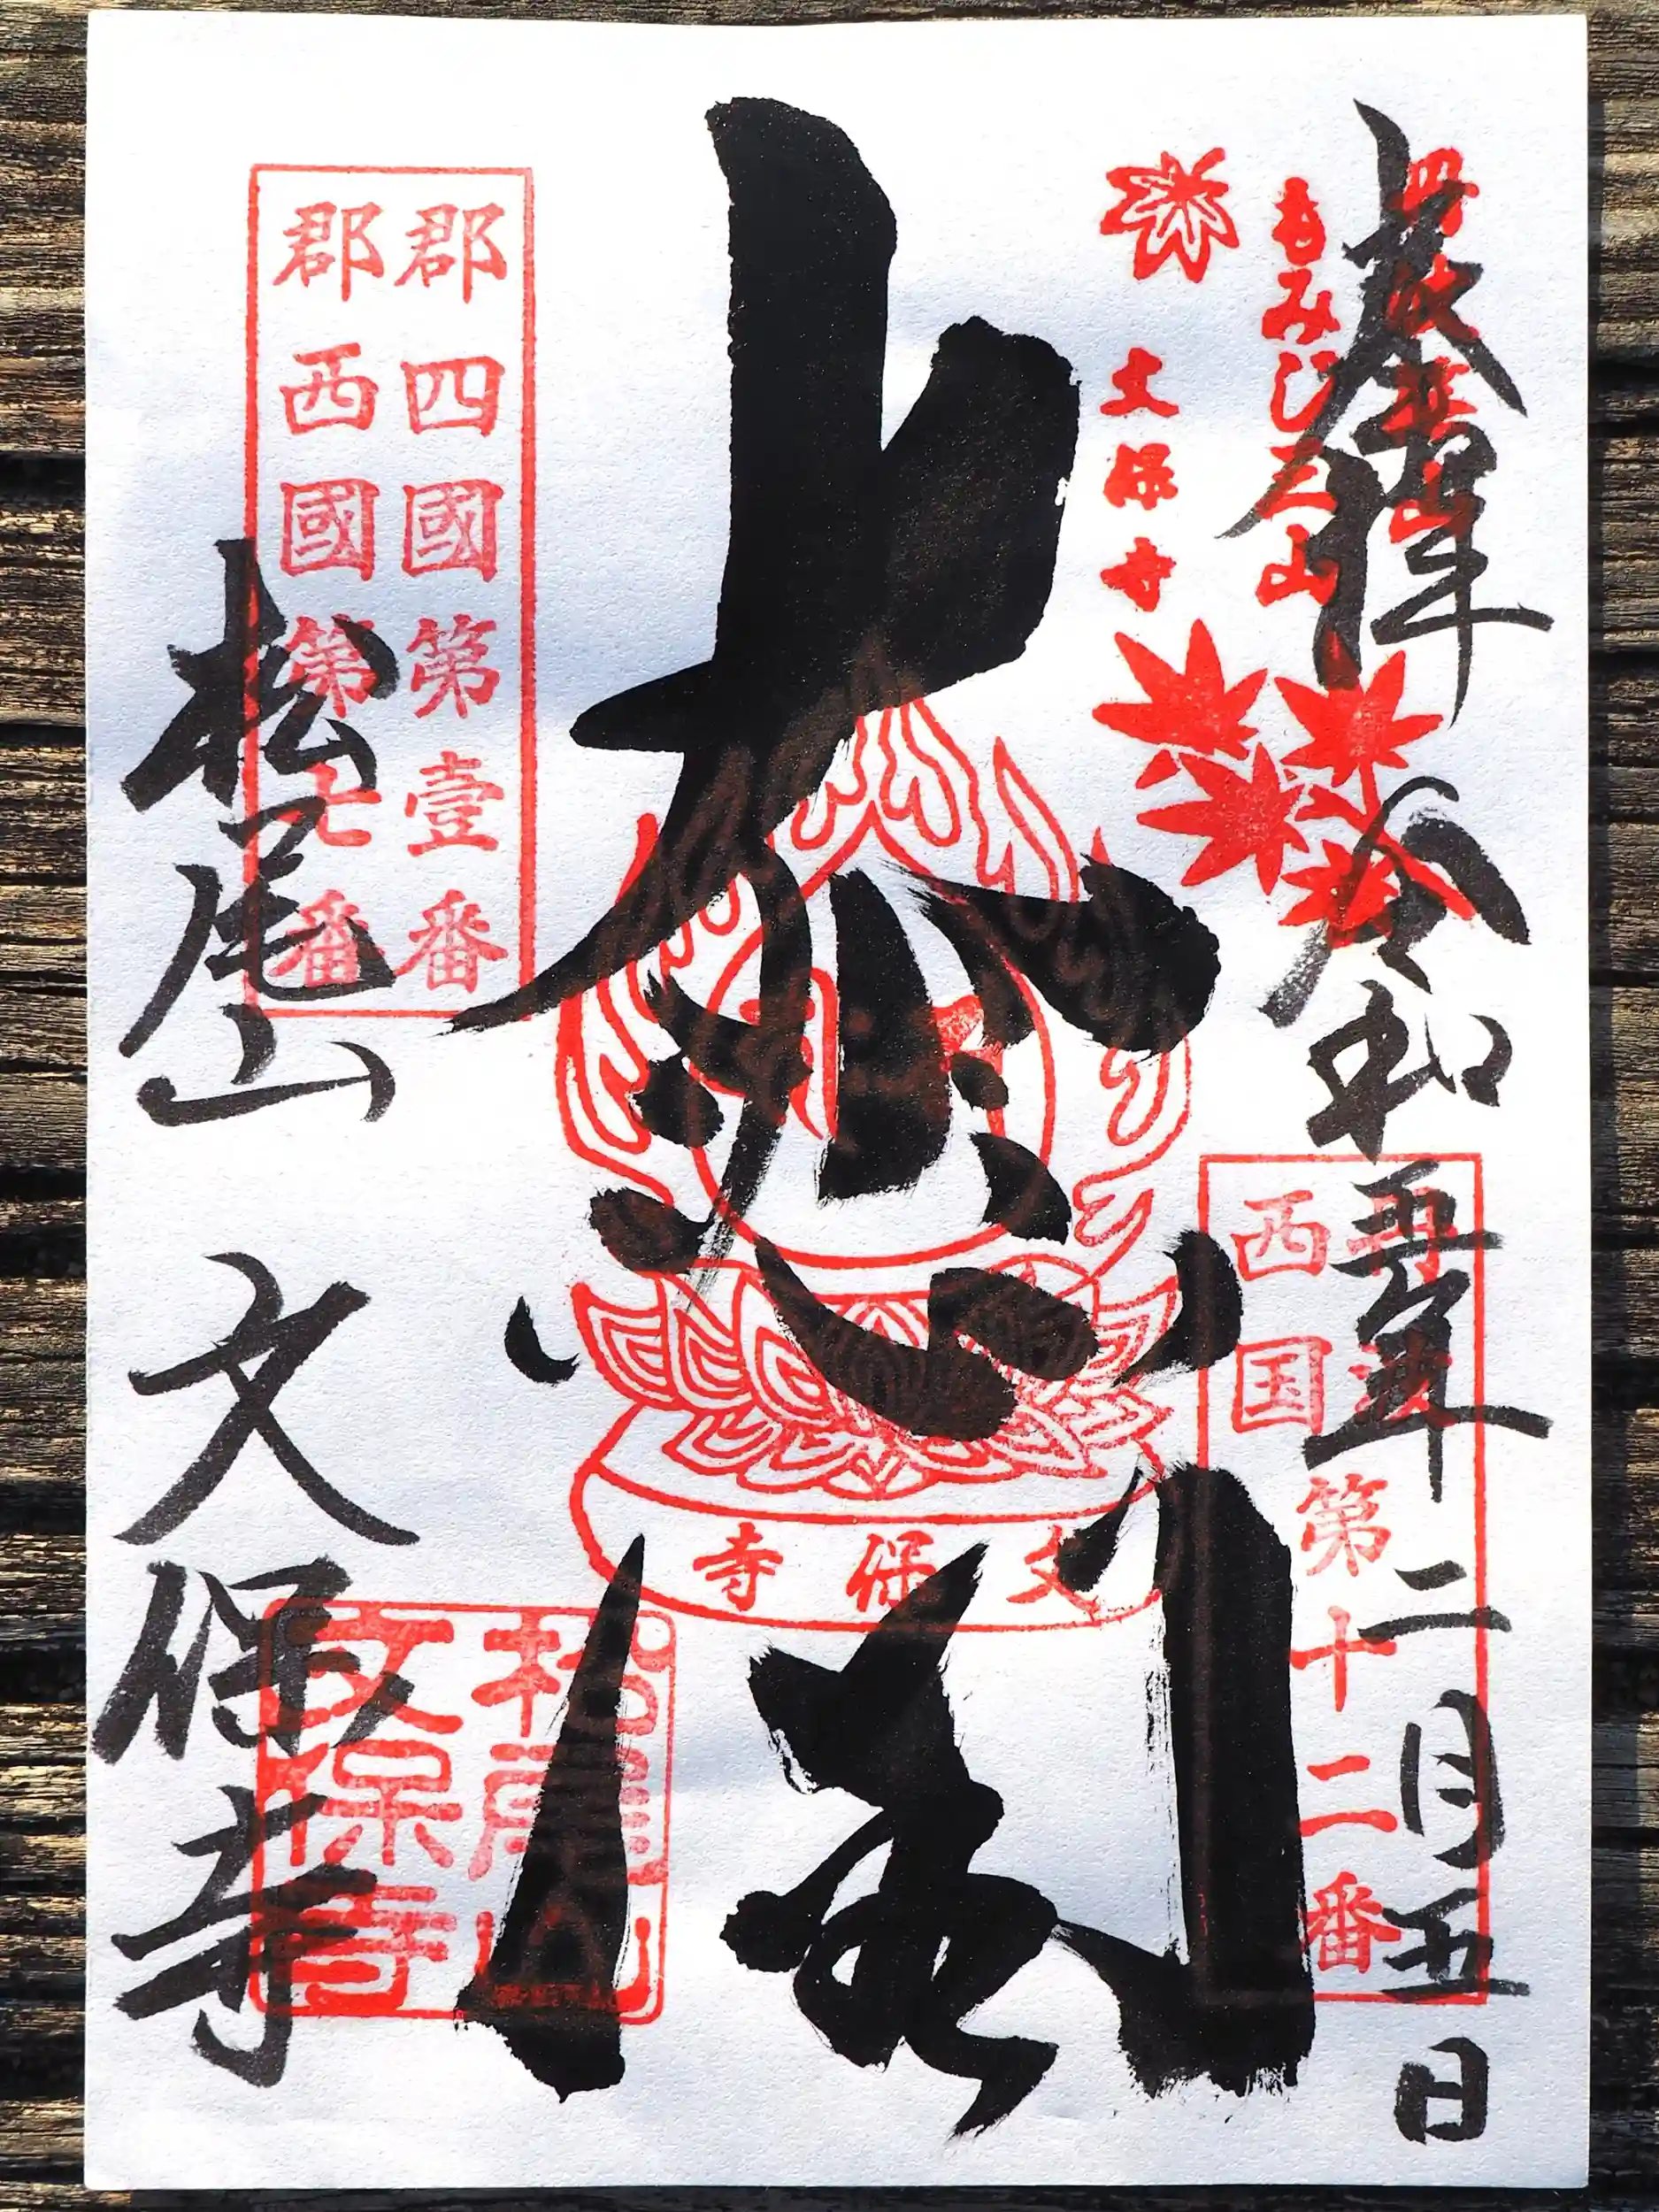 奉拝
令和五年二月五日
もみじ三山
文保寺
西国
第十二番
大悲閣
文保寺
郡四國第壹番
郡西國第七番
松尾山
文保寺
松尾山
文保寺